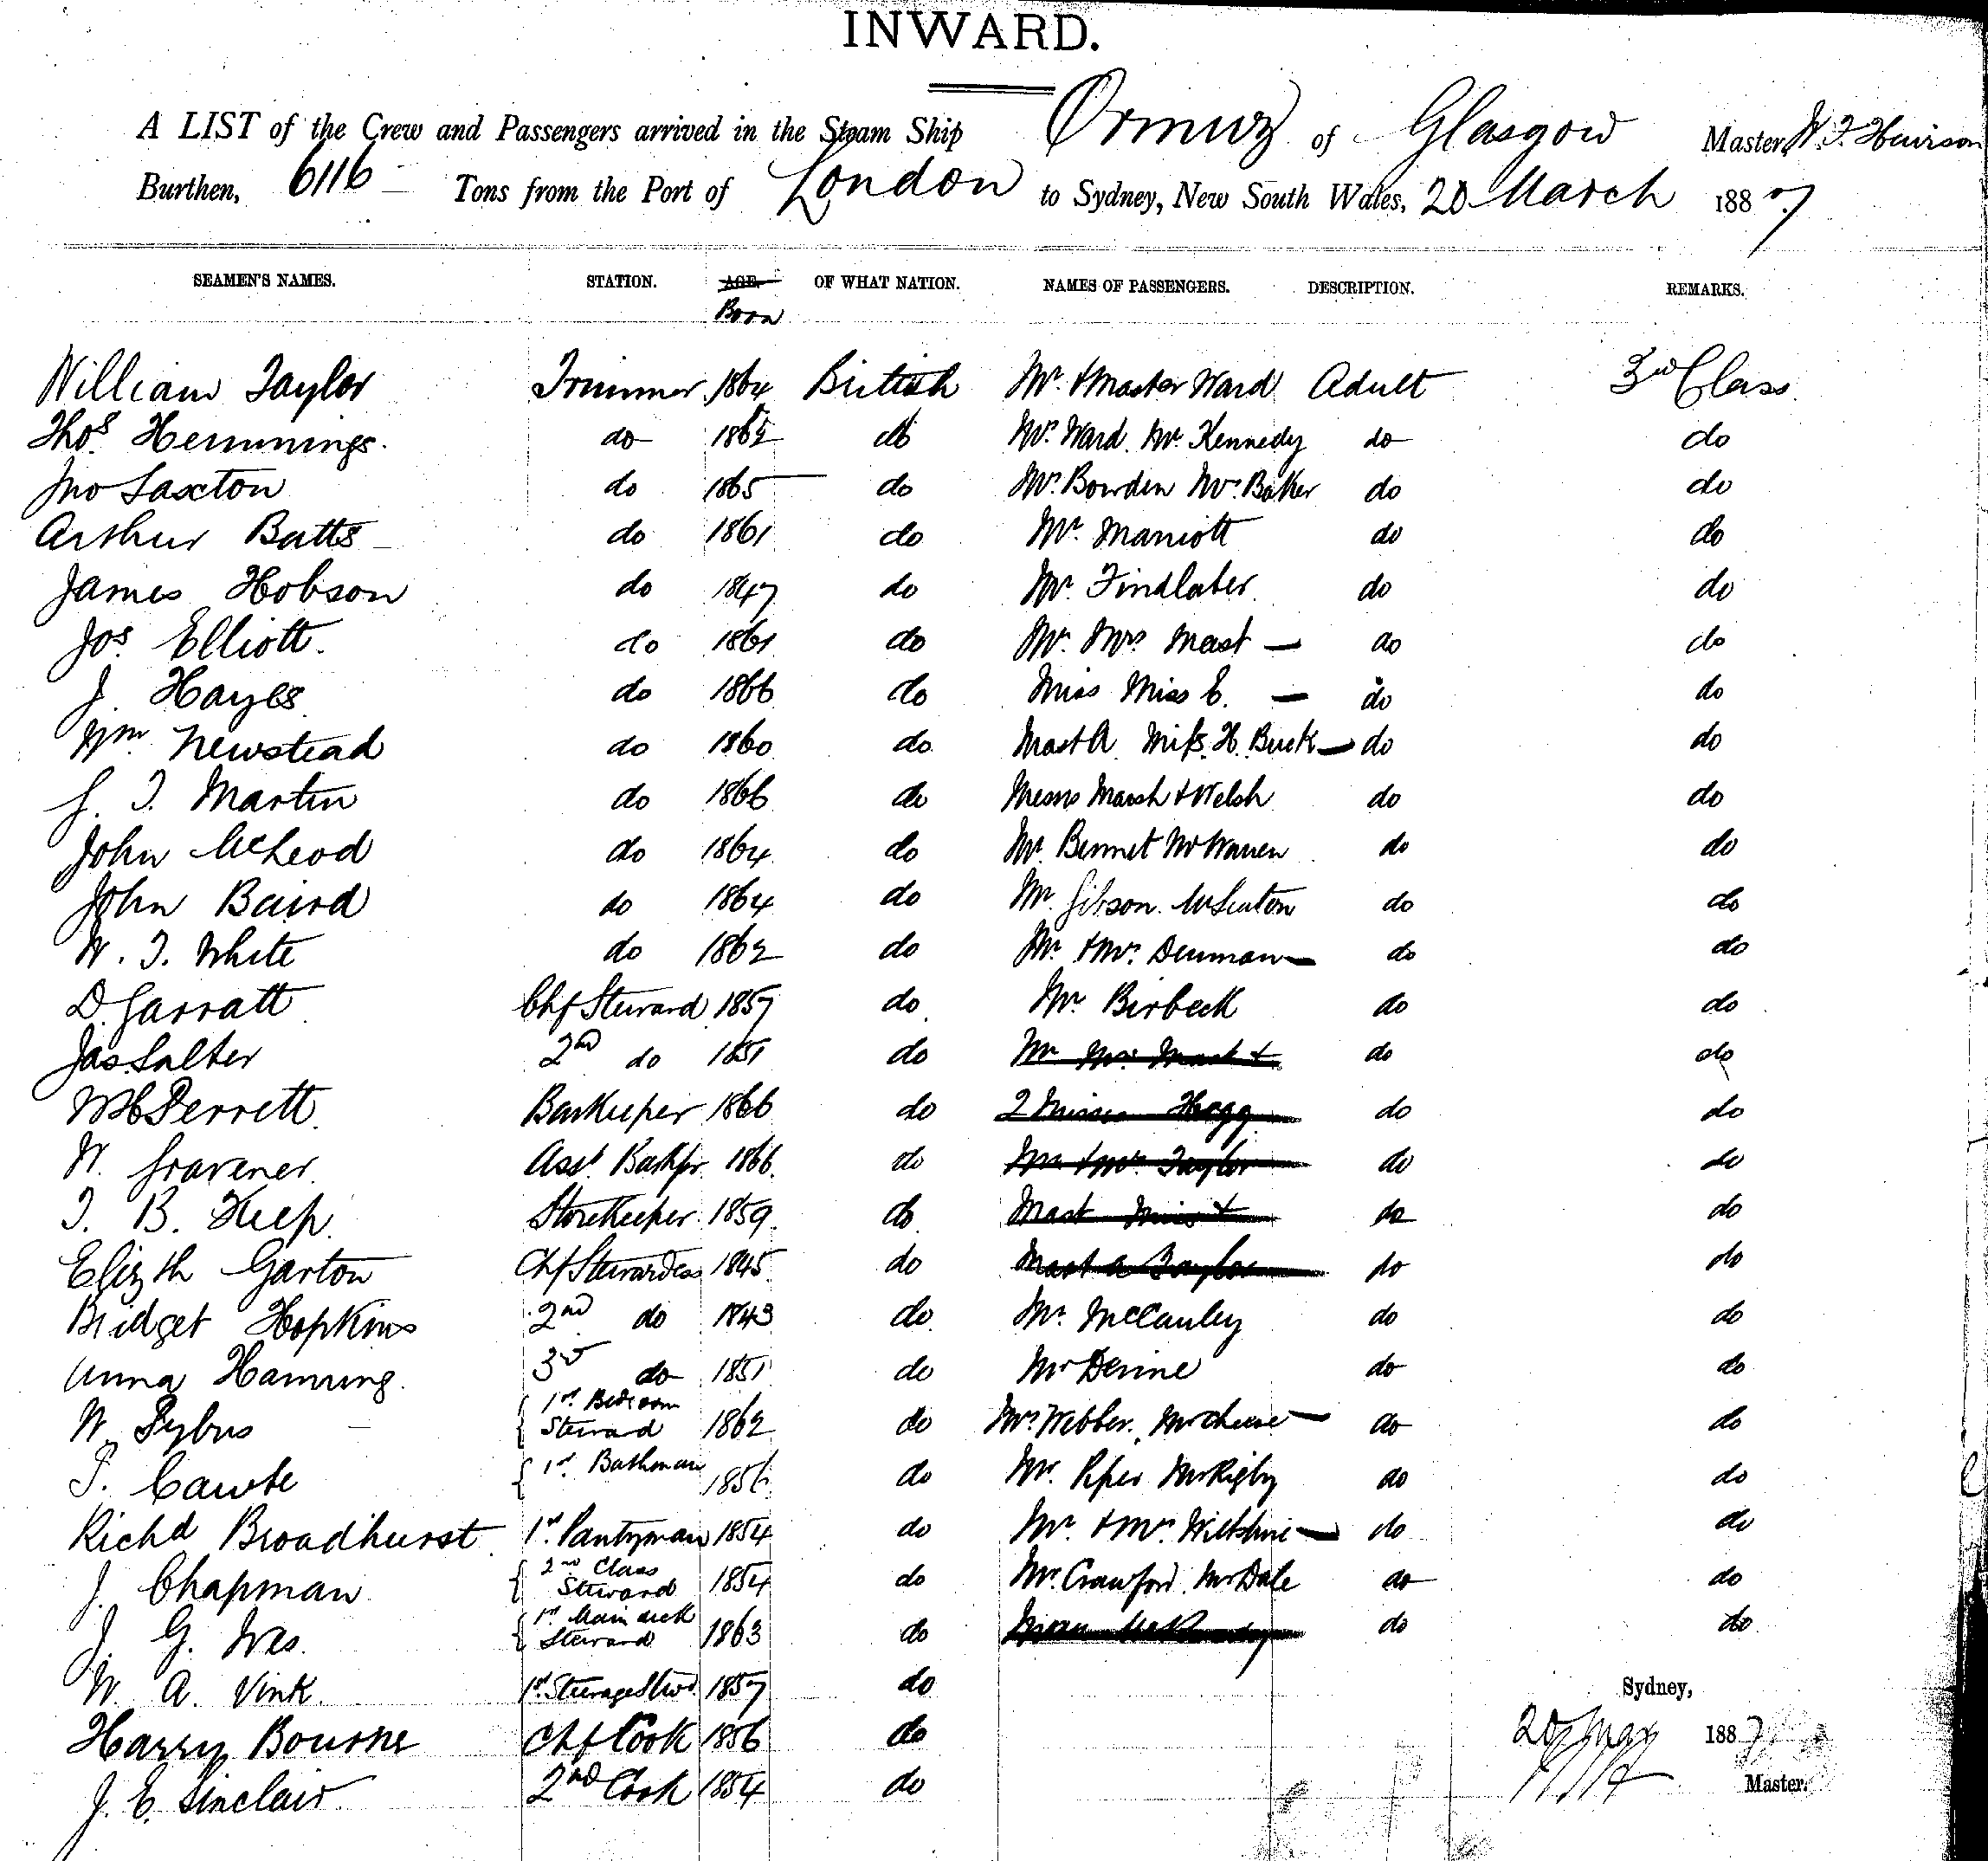 INWARD.
A LIST of the Crew and Passengers arrived in the Steam Ship Ormuz of Glasgow Master W. F.
Burthen, 6116 Tons from the Port of London to Sydney, New South Wales, 20 March 1887
SEAMEN'S NAMES. STATION. AGE OF WHAT NATION. NAMES OF PASSENGERS. DESCRIPTION. REMARKS.
Born
William Taylor Trimmer 1864 British Mr. & Master Ward Adult 3rd Class
Thos. Hemmings. do 1862 do Mr. Ward. Mr. Kennedy do do
Jno Saxton do 1865 do Mr. Bowden Mr. Baker do do
Arthur Batts do 1861 do Mr. Marriott do do
James Hobson do 1847 do Mr. Findlater do do
Jos. Elliott. do 1861 do Mr. Mrs Mast — do do
J. Hayes do 1866 do Miss Miss E. — do do
Wm. Newstead do 1860 do Mast A Miss H. Buck — do do
J. T. Martin do 1866 do Messrs Marsh & Welsh do do
John McLeod do 1864 do Mr. Bennet Mr Warren do do
John Baird do 1864 do Mr. Gibson. do do
W. T. White do 1862 do Mr. & Mrs. Denman — do do
D. Garratt Chf Steward 1857 do Mr. Birbeck do do
Jas. Salter 2nd do 1851 do Mr Mrs Mast & do do
W H Perrett. Barkeeper 1866 do 2 Misses Hogg do do
W. Gravener. Asst. Barkpr. 1866 do Mr & Mrs Taylor do do
T. B. Keep. Storekeeper 1859 do Mast Miss & do do
Elizth Garton Chf Stewardess 1845 do Mast A Taylor do do
Bridget Hopkins 2nd do 1843 do Mr. McCauley do do
Anna Hanning. 3rd do 1851 do Mr Devine do do
W. Pybus 1st. Bedroom Steward 1862 do Mrs. Webber. do do
P. Cawte 1st. Bathman 1856 do Mr. Piper Mr Rigby do do
Richd Broadhurst 1st. Pantryman 1854 do Mr. & Mrs. Wiltshire — do do
J. Chapman 2nd Class Steward 1854 do Mr. Crawford. Mr Dale do do
J. G. Ives. 1st Main deck Steward 1863 do do do
W. A. Vink 1st. Steerage Stwd. 1857 do
Harry Bourne Chf Cook 1856 do
J. E. Sinclair. 2nd Cook 1854 do
Sydney,
20 Mar 1887
Master.